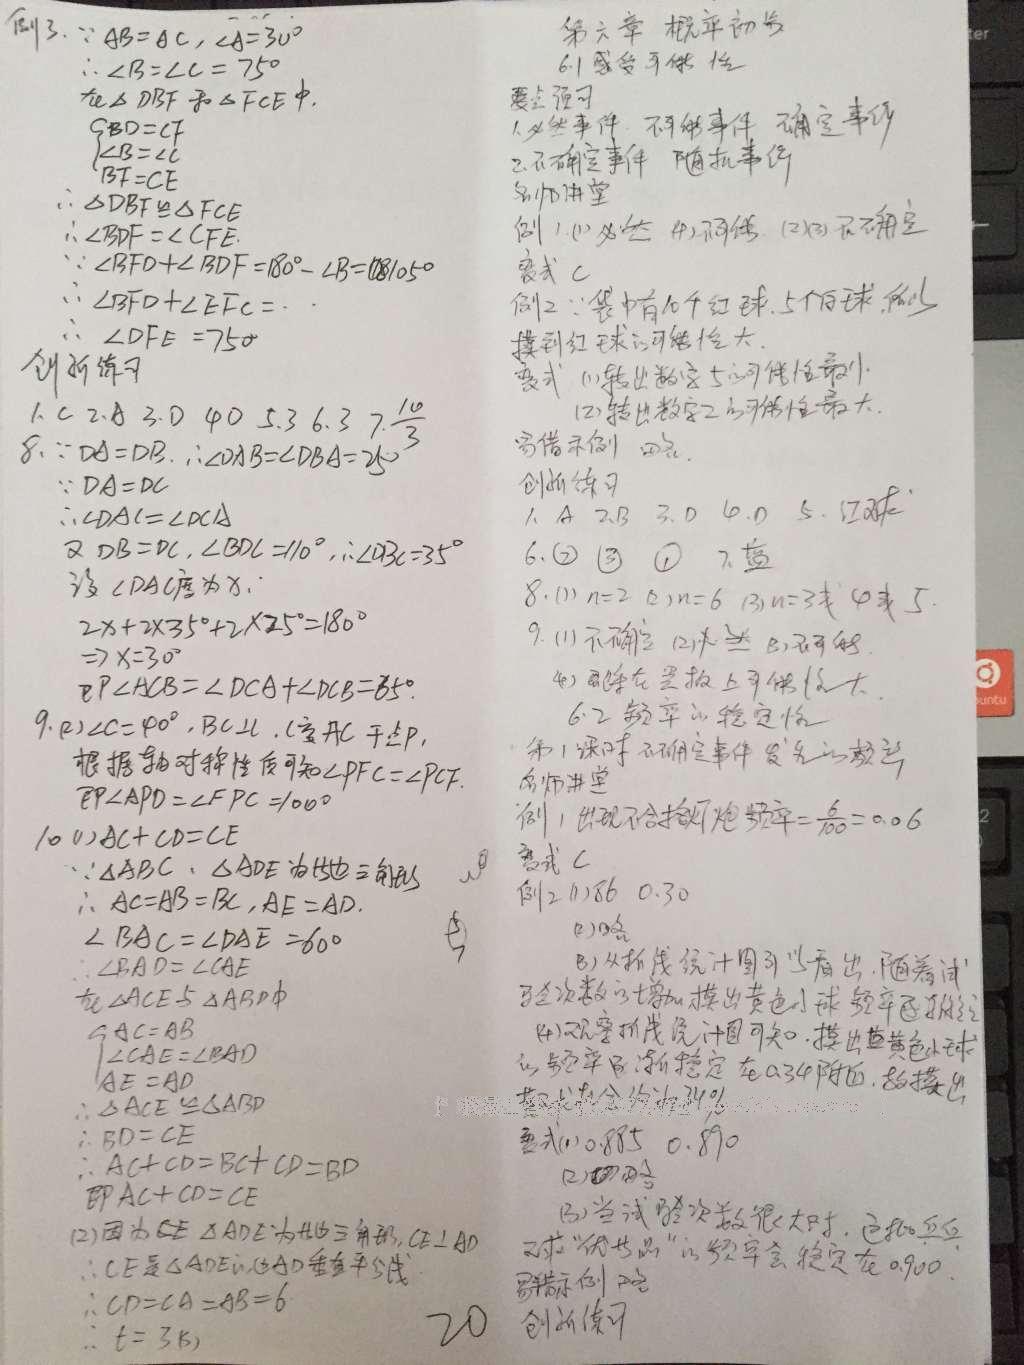 例3. ∵AB=AC, ∠A=30°
∴∠B=∠C=75°
在△DBF和△FCE中.
BD=CF
∠B=∠C
BF=CE
∴△DBF≌△FCE
∴∠BDF=∠CFE.
∵∠BFD+∠BDF=180°-∠B=105°
∴∠BFD+∠EFC=
∴∠DFE=75°
创新练习
1.C 2.A 3.D 4.D 5.3 6.3 7.10/3
8.∵DA=DB.∴∠DAB=∠DBA=25°
∵DA=DC
∴∠DAC=∠DCA
又DB=DC,∠BDC=110°,∴∠DBC=35°
设∠DAC度为x:
2x+2×35°+2×25°=180°
⇒x=30°
即∠ACB=∠DCA+∠DCB=65°
9.(2)∠C=40°,BC⊥l,l交AC于点P,
根据轴对称性质可知∠PFC=∠PCF.
即∠APD=∠FPC=100°
10(1)AC+CD=CE
∵△ABC、△ADE为等边三角形
∴AC=AB=BC,AE=AD.
∠BAC=∠DAE=60°
∴∠BAD=∠CAE
在△ACE与△ABD中
AC=AB
∠CAE=∠BAD
AE=AD
∴△ACE≌△ABD
∴BD=CE
∴AC+CD=BC+CD=BD
即AC+CD=CE
(2)因为△ADE为等边三角形,CE⊥AD
∴CE是△ADE的边AD垂直平分线
∴CD=CA=AB=6
∴t=3(s)
20
第六章 概率初步
6.1感受可能性
要点预习
1.必然事件 不可能事件 不确定事件
2.不确定事件 随机事件
名师讲堂
例1.(1)必然 (4)不可能 (2)(3)不确定
变式 C
例2∵袋中有10个红球,5个白球,所以
摸到红球的可能性大.
变式 (1)转出数字5的可能性最小.
(2)转出数字2的可能性最大.
易错示例 略.
创新练习
1.A 2.B 3.D 4.D 5.红球
6.② ③ ① 7.蓝
8.(1)n=2 (2)n=6 (3)n=3或4或5.
9.(1)不确定 (2)必然 (3)不可能.
(4)落在黑板上可能性大.
6.2 频率的稳定性
第1课时 不确定事件发生的频率
名师讲堂
例1 出现不合格灯炮频率=6/100=0.06
变式 C
例2(1)86 0.30
(2)略
(3)从折线统计图可以看出,随着试
验次数的增加摸出黄色小球频率逐渐稳定
(4)观察折线统计图可知,摸出黄色小球
的频率逐渐稳定在0.34附近,故摸出
34%
变式(1)0.885 0.890
(2)略
(3)当试验次数很大时,这批乒乓
球"优等品"的频率会稳定在0.900.
易错示例 略
创新练习